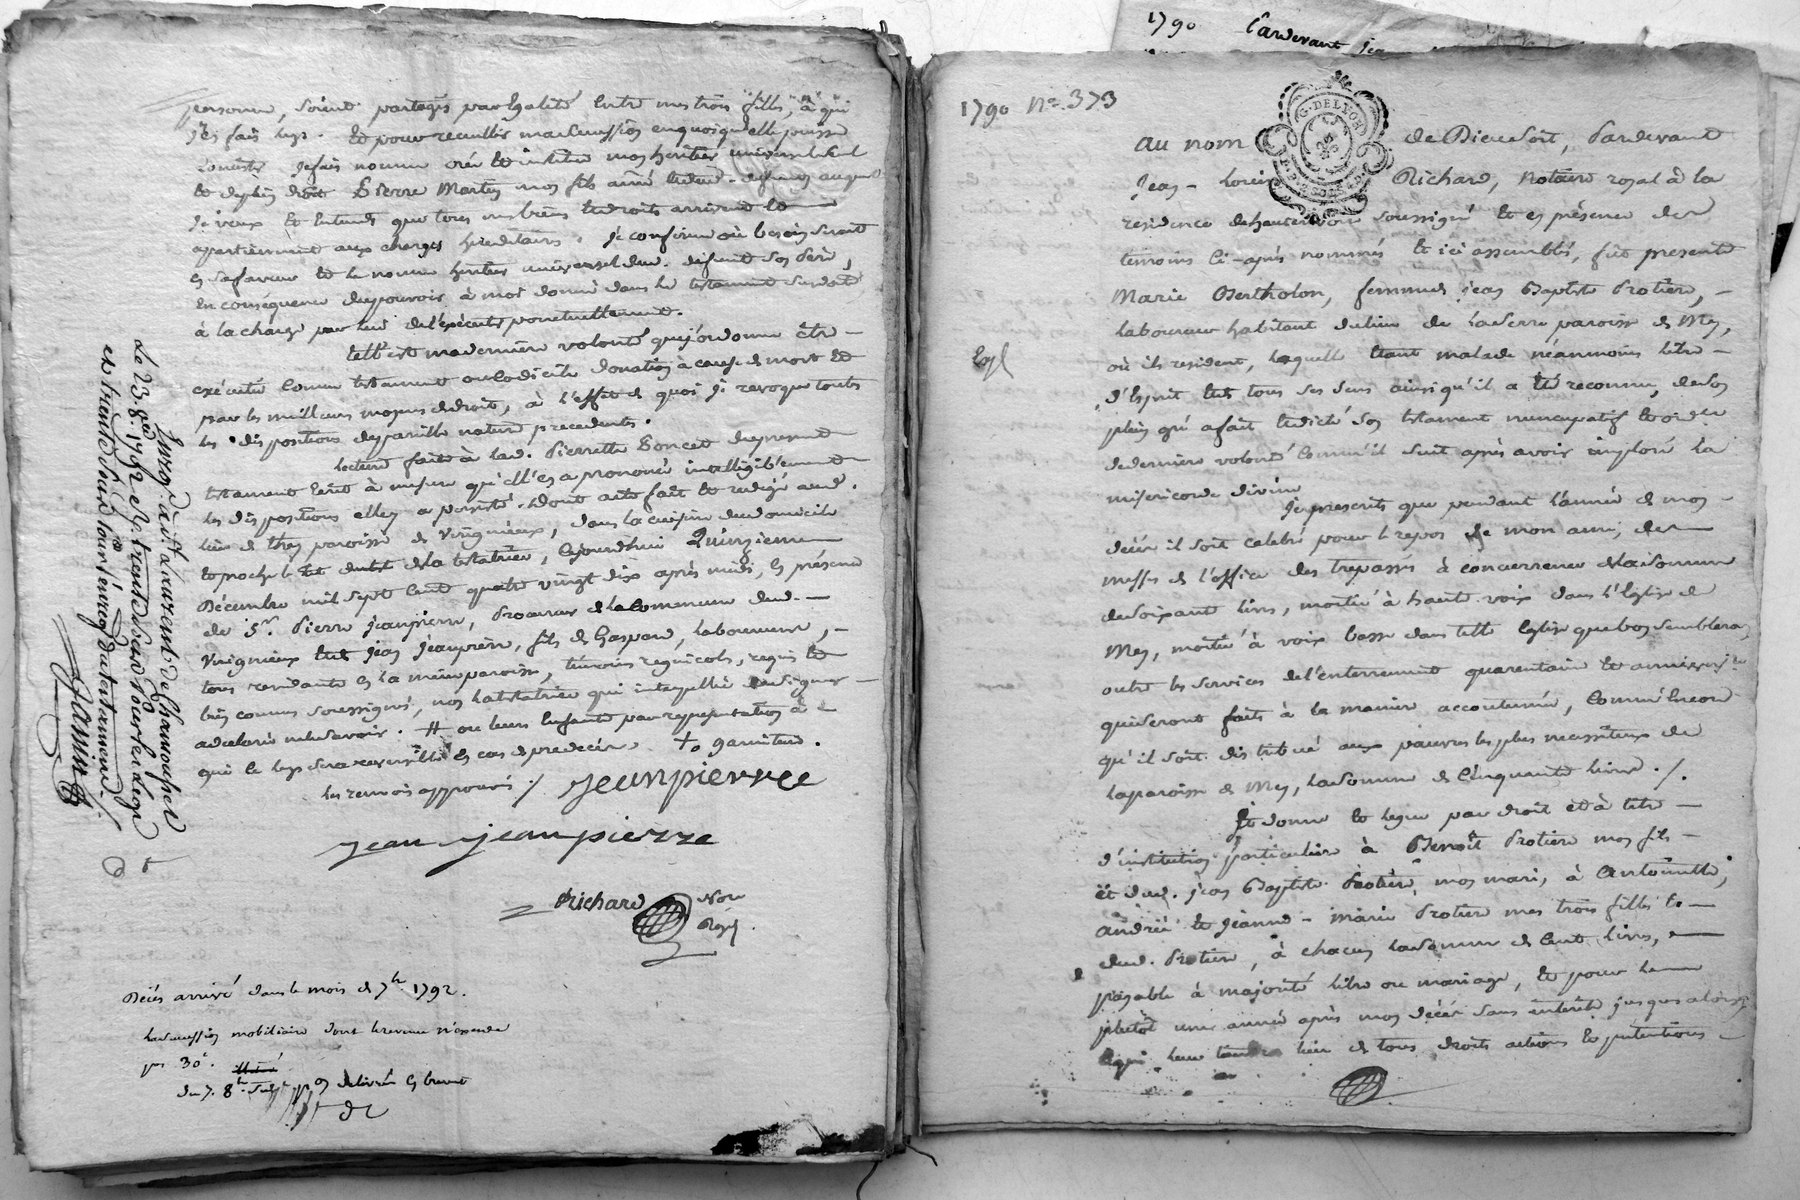 personne, soient partagés par Egalité Entre mes trois filles, à qui
j'en fais legs. Et pour recueillir ma succession en quoiqu'elle puisse
Consister je fais nomme crée et institue mon héritier universel seul
et de plein droit Pierre mon fils aîné dud. défunt auquel
je veux et Entends que tous mes biens et droits arrivent et
appartiennent aux charges héréditaires. Je confirme où besoin seroit
En sa faveur et le nomme héritier universel dud. défunt son père,
En conséquence du pouvoir à moi donné dans le testament susdaté
à la charge par lui de l'exécuter ponctuellement.
telle est ma derniere volonté que j'ordonne être
exécutée Comme testament ou Codicile donation à cause de mort et
par les meilleurs moyens de droit, à l'effet de quoi je revoque toutes
les dispositions de pareille nature precedentes.
lecture faite à lad. Pierrette Poncet du present
testament écrit à mesure qu'elle en a prononcé intelligiblement
les dispositions elle y a persisté. Dont acte fait et redigé aud.
lieu de paroisse de Virignieux, dans la cuisine du domicile
et proche le lit de la testatrice, Cejourd'hui Quinzieme
Décembre mil sept Cent quatre vingt dix après midi, En présence
de Sr. Pierre Jeanpierre, Procureur de la Commune dud.
Virignieux et Jean Jeanpierre, fils de Gaspard, laboureur,
tous residants En la même paroisse, témoins regnicols, requis et
bien connus soussignés, non la testatrice qui interpellée de signer
a declaré ne le savoir. # ou leurs Enfants par representation à
qui le legs sera reversible En cas de predecès. + garniture.
les renvois approuvés ./. jeanpierre
jean jeanpierre
Richard Nore
Royl.
Décès arrivé dans le mois de 7bre 1792.
la succession mobiliaire dont le revenu n'excede
pas 30#.
du 7. 8bre delivré En brevet
Enreg. à St Laurent de Chamousset
Le 23. 8bre 1792
et trente deux sous pour l'enreg. du testament
Jamin
1790 Pardevant Jean
1790 No. 373
G. DE LYON
Au nom de Dieu soit, Pardevant
Jean-Louis Richard, Notaire royal à la
residence de hauterivoire soussigné et En présence des
temoins Ci-après nommés et ici assemblés, fut presente
Marie Bertholon, femme de Jean Baptiste Protiere,
laboureur habitant du lieu de Laserre paroisse de Mey,
où ils resident, laquelle Etant malade néanmoins libre
Expl
d'Esprit Et de tous ses sens ainsi qu'il a été reconnu, de son
plein gré a fait et dicté son testament nuncupatif et ordce.
de derniere volonté Comm'il suit après avoir imploré la
misericorde divine
Je prescrits que pendant l'année de mon
décès il soit celebré pour le repos de mon ame, des
messes de l'office des trepassés à concurrence de la somme
de soixante livres, moitié à haute voix dans l'Eglise de
Mey, moitié à voix basse dans telle Eglise que bon semblera,
outre les services de l'enterrement quarentaine et anniversre
qui seront faits à la maniere accoutumée, Comm'Encore
qu'il soit distribué aux pauvres les plus necessiteux de
la paroisse de Mey, la somme de Cinquante livres ./.
Je donne et legue par droit et à titre
d'institution particuliere à Benoît Protiere mon fils
et dud. Jean Baptiste Protiere, mon mari, à Antoinette,
andrée et Jeanne-Marie Protiere mes trois filles et
dud. Protiere, à chacun la somme de Cent livres,
payable à majorité libre ou mariage, et pour le
plutôt une année après mon décès sans interêts jusques alors,
ce qui leur tiendra lieu de tous droits actions et pretentions